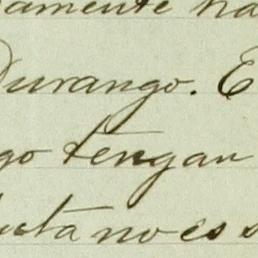 amente ha
Durango. E
go tengan
ta no es s